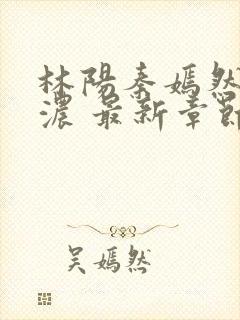 林陽秦嫣然
濃 最新章節
吴嫣然